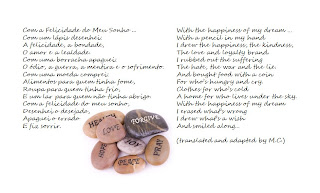 Com a Felicidade do Meu Sonho ...
Com um lápis desenhei
A felicidade, a bondade,
O amor e a lealdade.
Com uma borracha apaguei
O ódio, a guerra, a mentira e o sofrimento.
Com uma moeda comprei:
Alimentos para quem tinha fome,
Roupa para quem tinha frio,
E um lar para quem não tinha abrigo.
Com a felicidade do meu sonho,
Desenhei o desejado,
Apaguei o errado
E fiz sorrir.
With the happiness of my dream ...
With a pencil in my hand
I drew the happiness, the kindness,
The love and loyalty brand.
I rubbed out the suffering
The hate, the war and the lie,
And bought food with a coin
For who's hungry and cry,
Clothes for who's cold
A home for who lives under the sky,
With the happiness of my dream
I erased what's wrong
I drew what's a wish
And smiling along...
(translated and adapted by M.C.)
HEART
LOVE
FORGIVE
HOPE
PEACE
PRAY